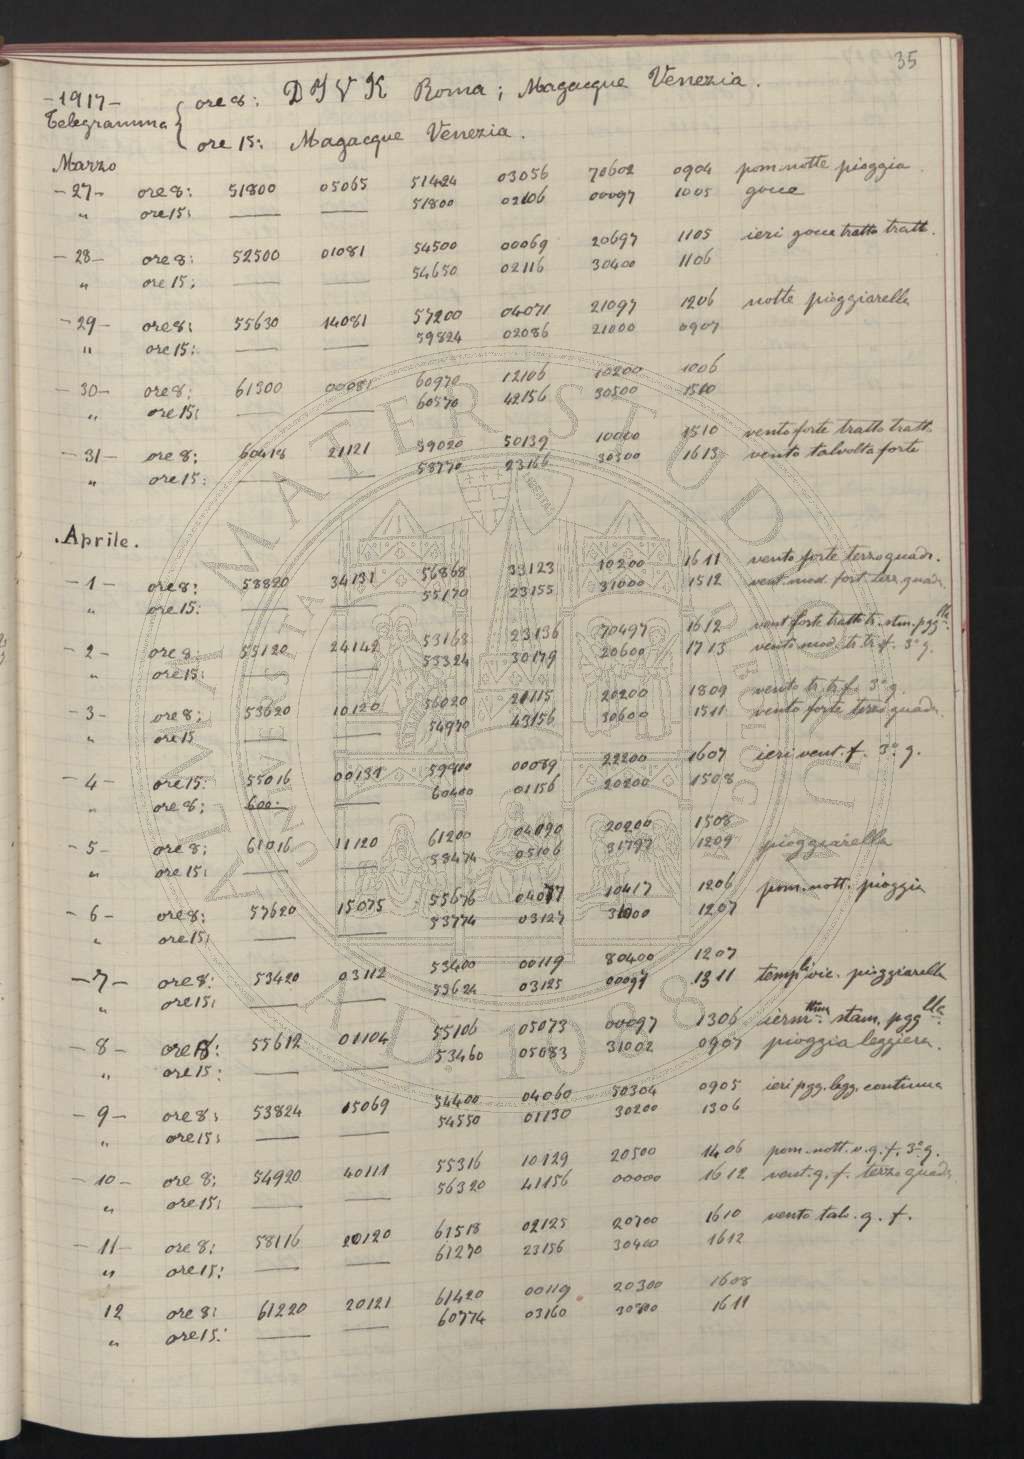 35
-1917- ore 8: DIVK Roma; Magacque Venezia.
Telegramma
ore 15: Magacque Venezia.
Marzo
-27- ore 8: 51800 05065 51424 03056 70602 0904 pom. notte pioggia
" ore 15: — — 51800 02106 00097 1005 gocce
-28- ore 8: 52500 01081 54500 00069 20697 1105 ieri gocce tratto tratt.
" ore 15: — — 54650 02116 30400 1106
-29- ore 8: 55630 14081 57200 04071 21097 1206 notte pioggiarella
" ore 15: — — 59824 02086 21000 0907
-30- ore 8: 61300 00081 60970 12106 10200 1006
" ore 15: — — 60570 42156 30500 1510
-31- ore 8: 60418 21121 59020 50139 10000 1510 vento forte tratto tratt.
" ore 15: — — 58770 23166 30300 1613 vento talvolta forte
.Aprile.
-1- ore 8: 58820 34131 56868 33123 10200 1611 vento forte terzo quadr.
" ore 15: — — 55170 23155 31000 1512 vent. mod. fort. terz. quadr.
-2- ore 8: 55120 24142 53168 23136 70497 1612 vent forte tratto tr. stm. pgg lla.
" ore 15: — — 53324 30179 20600 1713 vento mod. tr. tr. f. 3° q.
-3- ore 8: 53620 10120 56020 21115 20200 1809 vento tr. tr. f. 3° q.
" ore 15 — — 54970 43156 30600 1511 vento forte terzo quadr.
-4- ore 15: 55016 00131 59900 00089 22200 1607 ieri vent. f. 3° q.
" ore 8: 600 — 60400 01156 20200 1508
-5- ore 8: 61016 11120 61200 04090 20200 1508
" ore 15: — — 58474 05106 31797 1209 pioggiarella
-6- ore 8: 57620 15075 55676 04077 10417 1206 pom. nott. pioggia
" ore 15: — — 53774 03127 31000 1207
-7- ore 8: 53420 03112 53400 00119 80400 1207
" ore 15: — — 53624 03125 00097 1311 temp li vic. pioggiarella
-8- ore 8: 55612 01104 55106 05073 00097 1306 ierm ttina. stam. pgg lla.
" ore 15: — — 53460 05083 31002 0907 pioggia leggiera.
-9- ore 8: 53824 15069 54400 04060 50304 0905 ieri pgg. legg. continua
" ore 15: — — 54550 01130 30200 1306
-10- ore 8: 54920 40111 55316 10129 20500 1406 pom. nott. v. q. f. 3° q.
" ore 15: — — 56320 41156 00000 1612 vent. q. f. terzo quadr.
-11- ore 8: 58116 20120 61518 02125 20700 1610 vento talv. q. f.
" ore 15: — — 61270 23156 30400 1612
12 ore 8: 61220 20121 61420 00119 20300 1608
" ore 15: — — 60774 03160 1611
ALMA MATER STUDIORUM
A.D. 1088